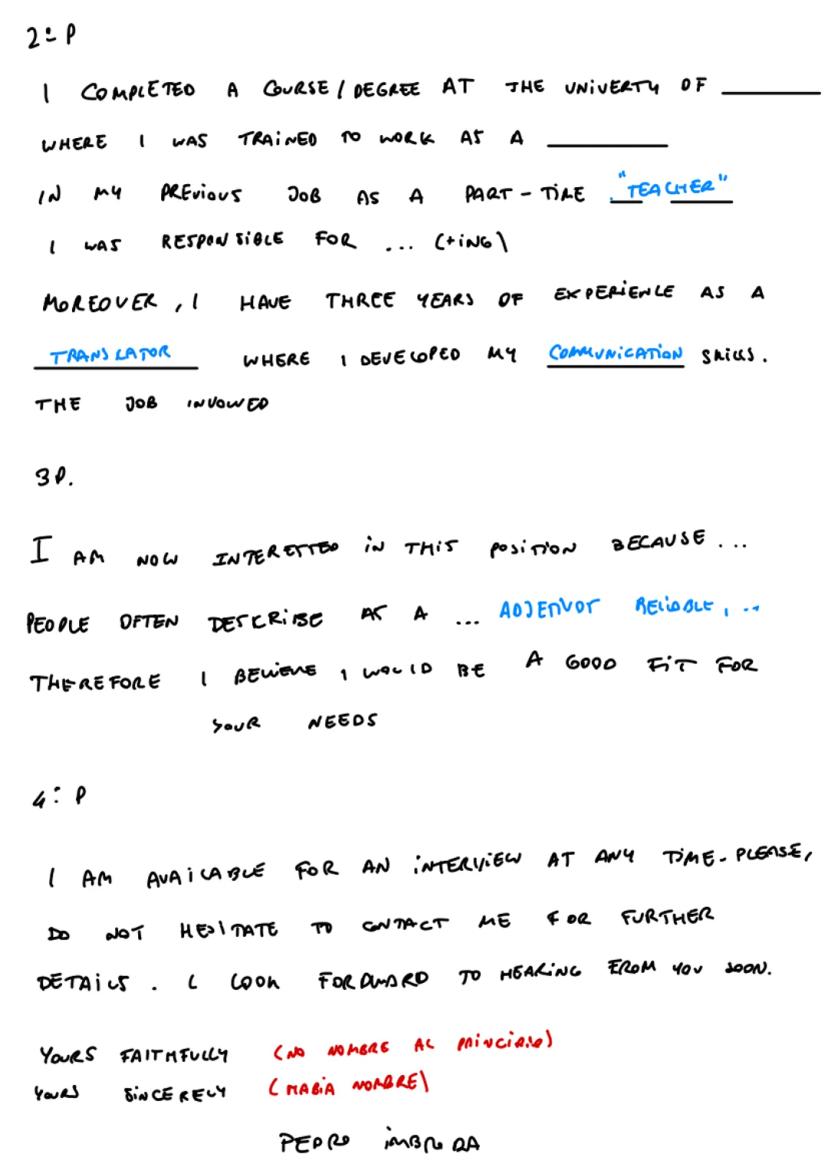 2º P
I COMPLETED A COURSE / DEGREE AT THE UNIVERTY OF ________
WHERE I WAS TRAINED TO WORK AS A ________
IN MY PREVIOUS JOB AS A PART-TIME "TEACHER"
I WAS RESPONSIBLE FOR ... (+ING)
MOREOVER, I HAVE THREE YEARS OF EXPERIENCE AS A
TRANSLATOR WHERE I DEVELOPED MY COMMUNICATION SKILLS.
THE JOB INVOLVED
3P.
I AM NOW INTERESTED IN THIS POSITION BECAUSE ...
PEOPLE OFTEN DESCRIBE AS A ... RELIABLE, ..
THEREFORE I BELIEVE I WOULD BE A GOOD FIT FOR
YOUR NEEDS
4º P
I AM AVAILABLE FOR AN INTERVIEW AT ANY TIME. PLEASE,
DO NOT HESITATE TO CONTACT ME FOR FURTHER
DETAILS. I LOOK FORDWARD TO HEARING FROM YOU SOON.
YOURS FAITHFULLY (NO NOMBRE AL PRINCIPIO)
YOURS SINCERELY (HABIA NOMBRE)
PEDRO IMBRODA